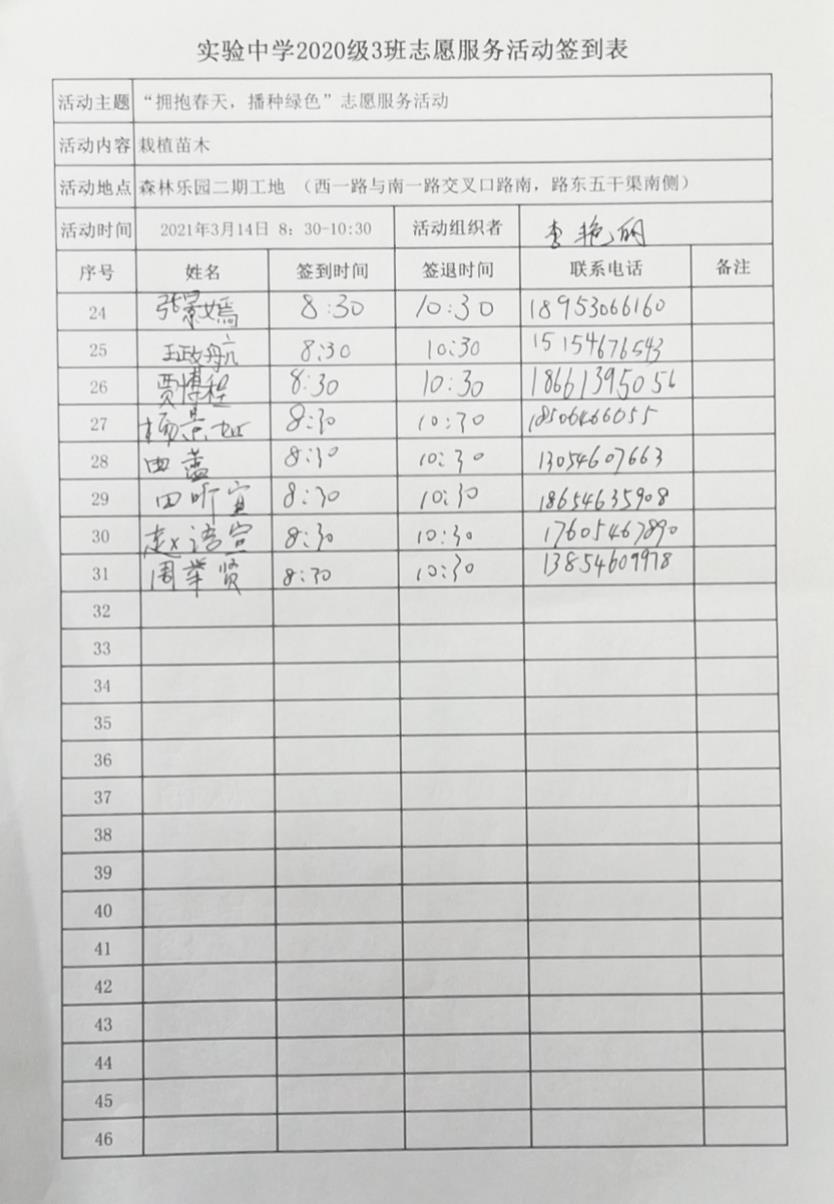 实验中学2020级3班志愿服务活动签到表
活动主题 “拥抱春天，播种绿色”志愿服务活动
活动内容 栽植苗木
活动地点 森林乐园二期工地 （西一路与南一路交叉口路南，路东五干渠南侧）
活动时间 2021年3月14日 8：30-10:30 活动组织者 李艳丽
序号 姓名 签到时间 签退时间 联系电话 备注
24 张景嫣 8:30 10:30 18953066160
25 王政航 8:30 10:30 15154676543
26 贾博程 8:30 10:30 18661395056
27 杨景 8:30 10:30 18506466055
28 8:30 10:30 13054607663
29 田昕宜 8:30 10:30 18654635908
30 赵语宣 8:30 10:30 17605467890
31 周举贤 8:30 10:30 13854609978
32
33
34
35
36
37
38
39
40
41
42
43
44
45
46